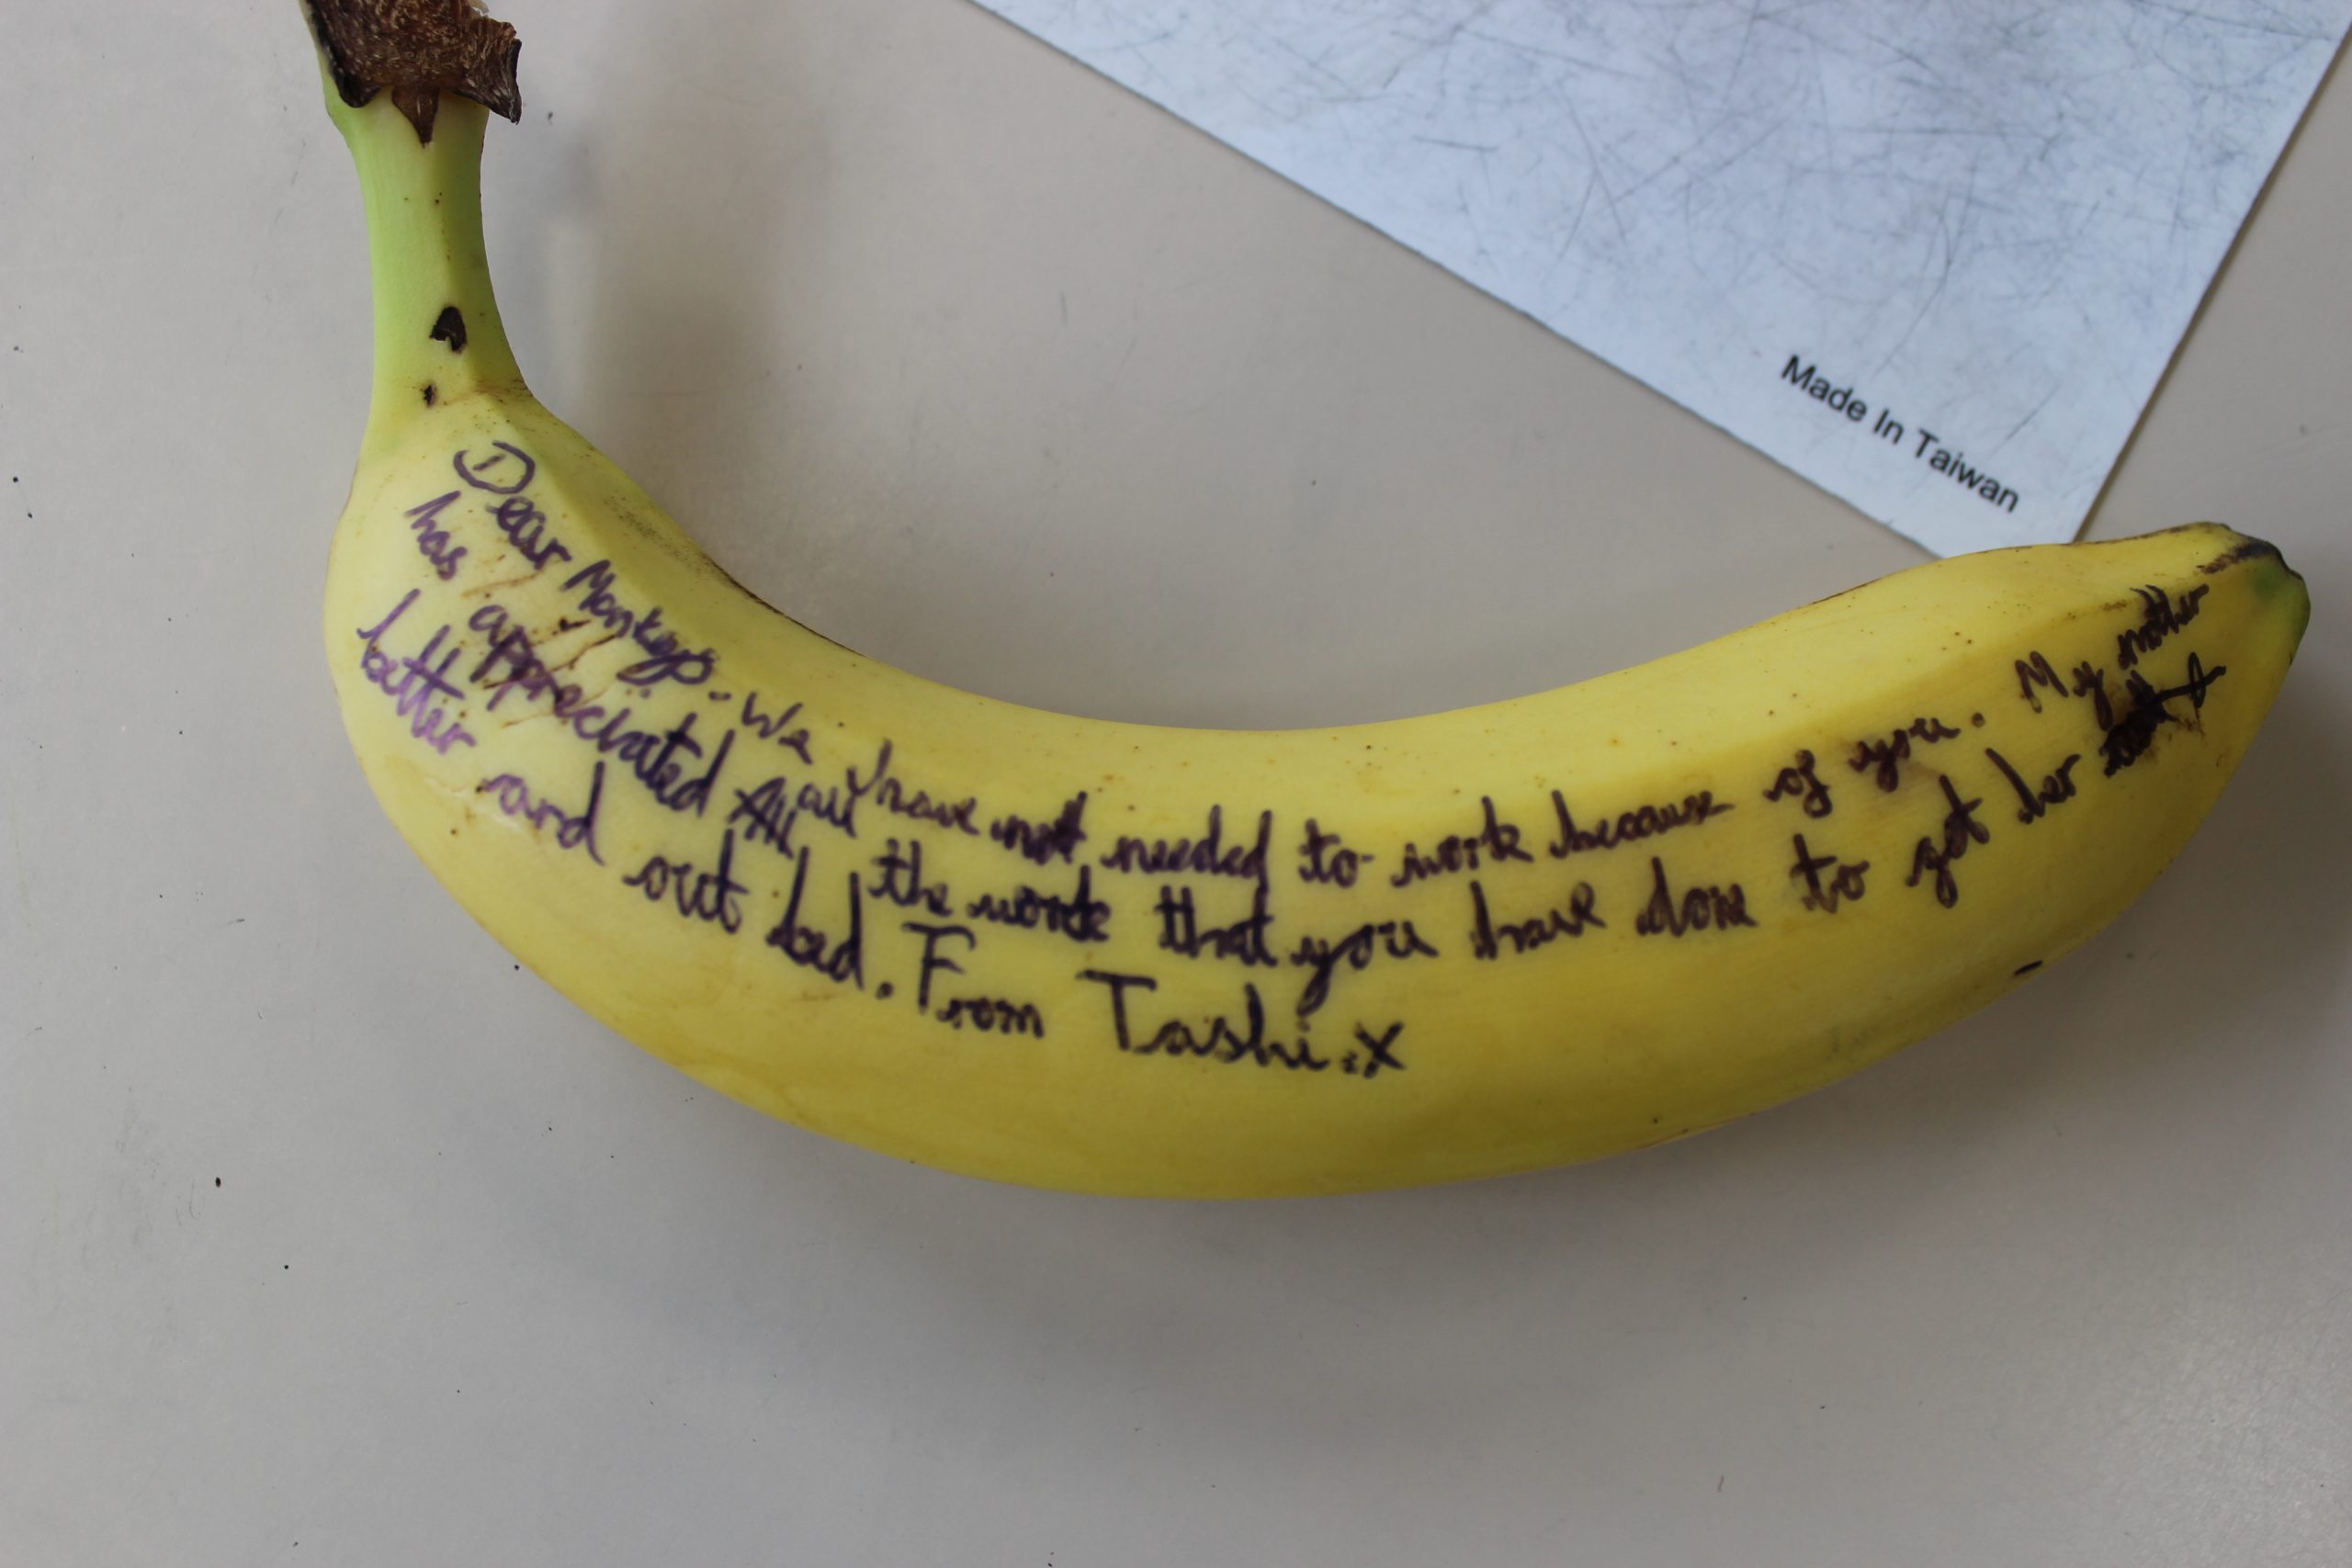 Made In Taiwan
Dear Monkeys. We have not needed to work because of you. My mother
has appreciated all the work that you have done to get her
better and out bed. From Tashi. x